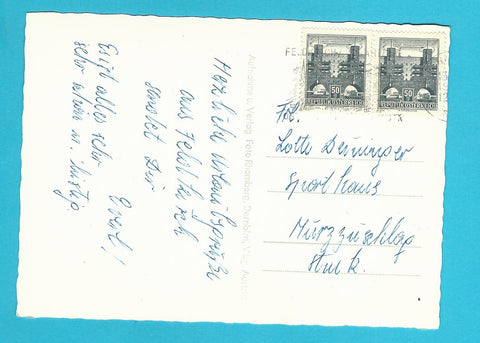 Herzliche Urlaubsgrüße
aus Feldkirch
sendet Dir
Everl!
Es ist alles sehr
sehr nett u. lustig.
Aufnahme u. Verlag: Foto Rhomberg, Dornbirn, Vlbg., Austria
50
REPUBLIK ÖSTERREICH
50
REPUBLIK ÖSTERREICH
Frl.
Lotte Deininger
Sporthaus
Mürzzuschlag
Stmk.